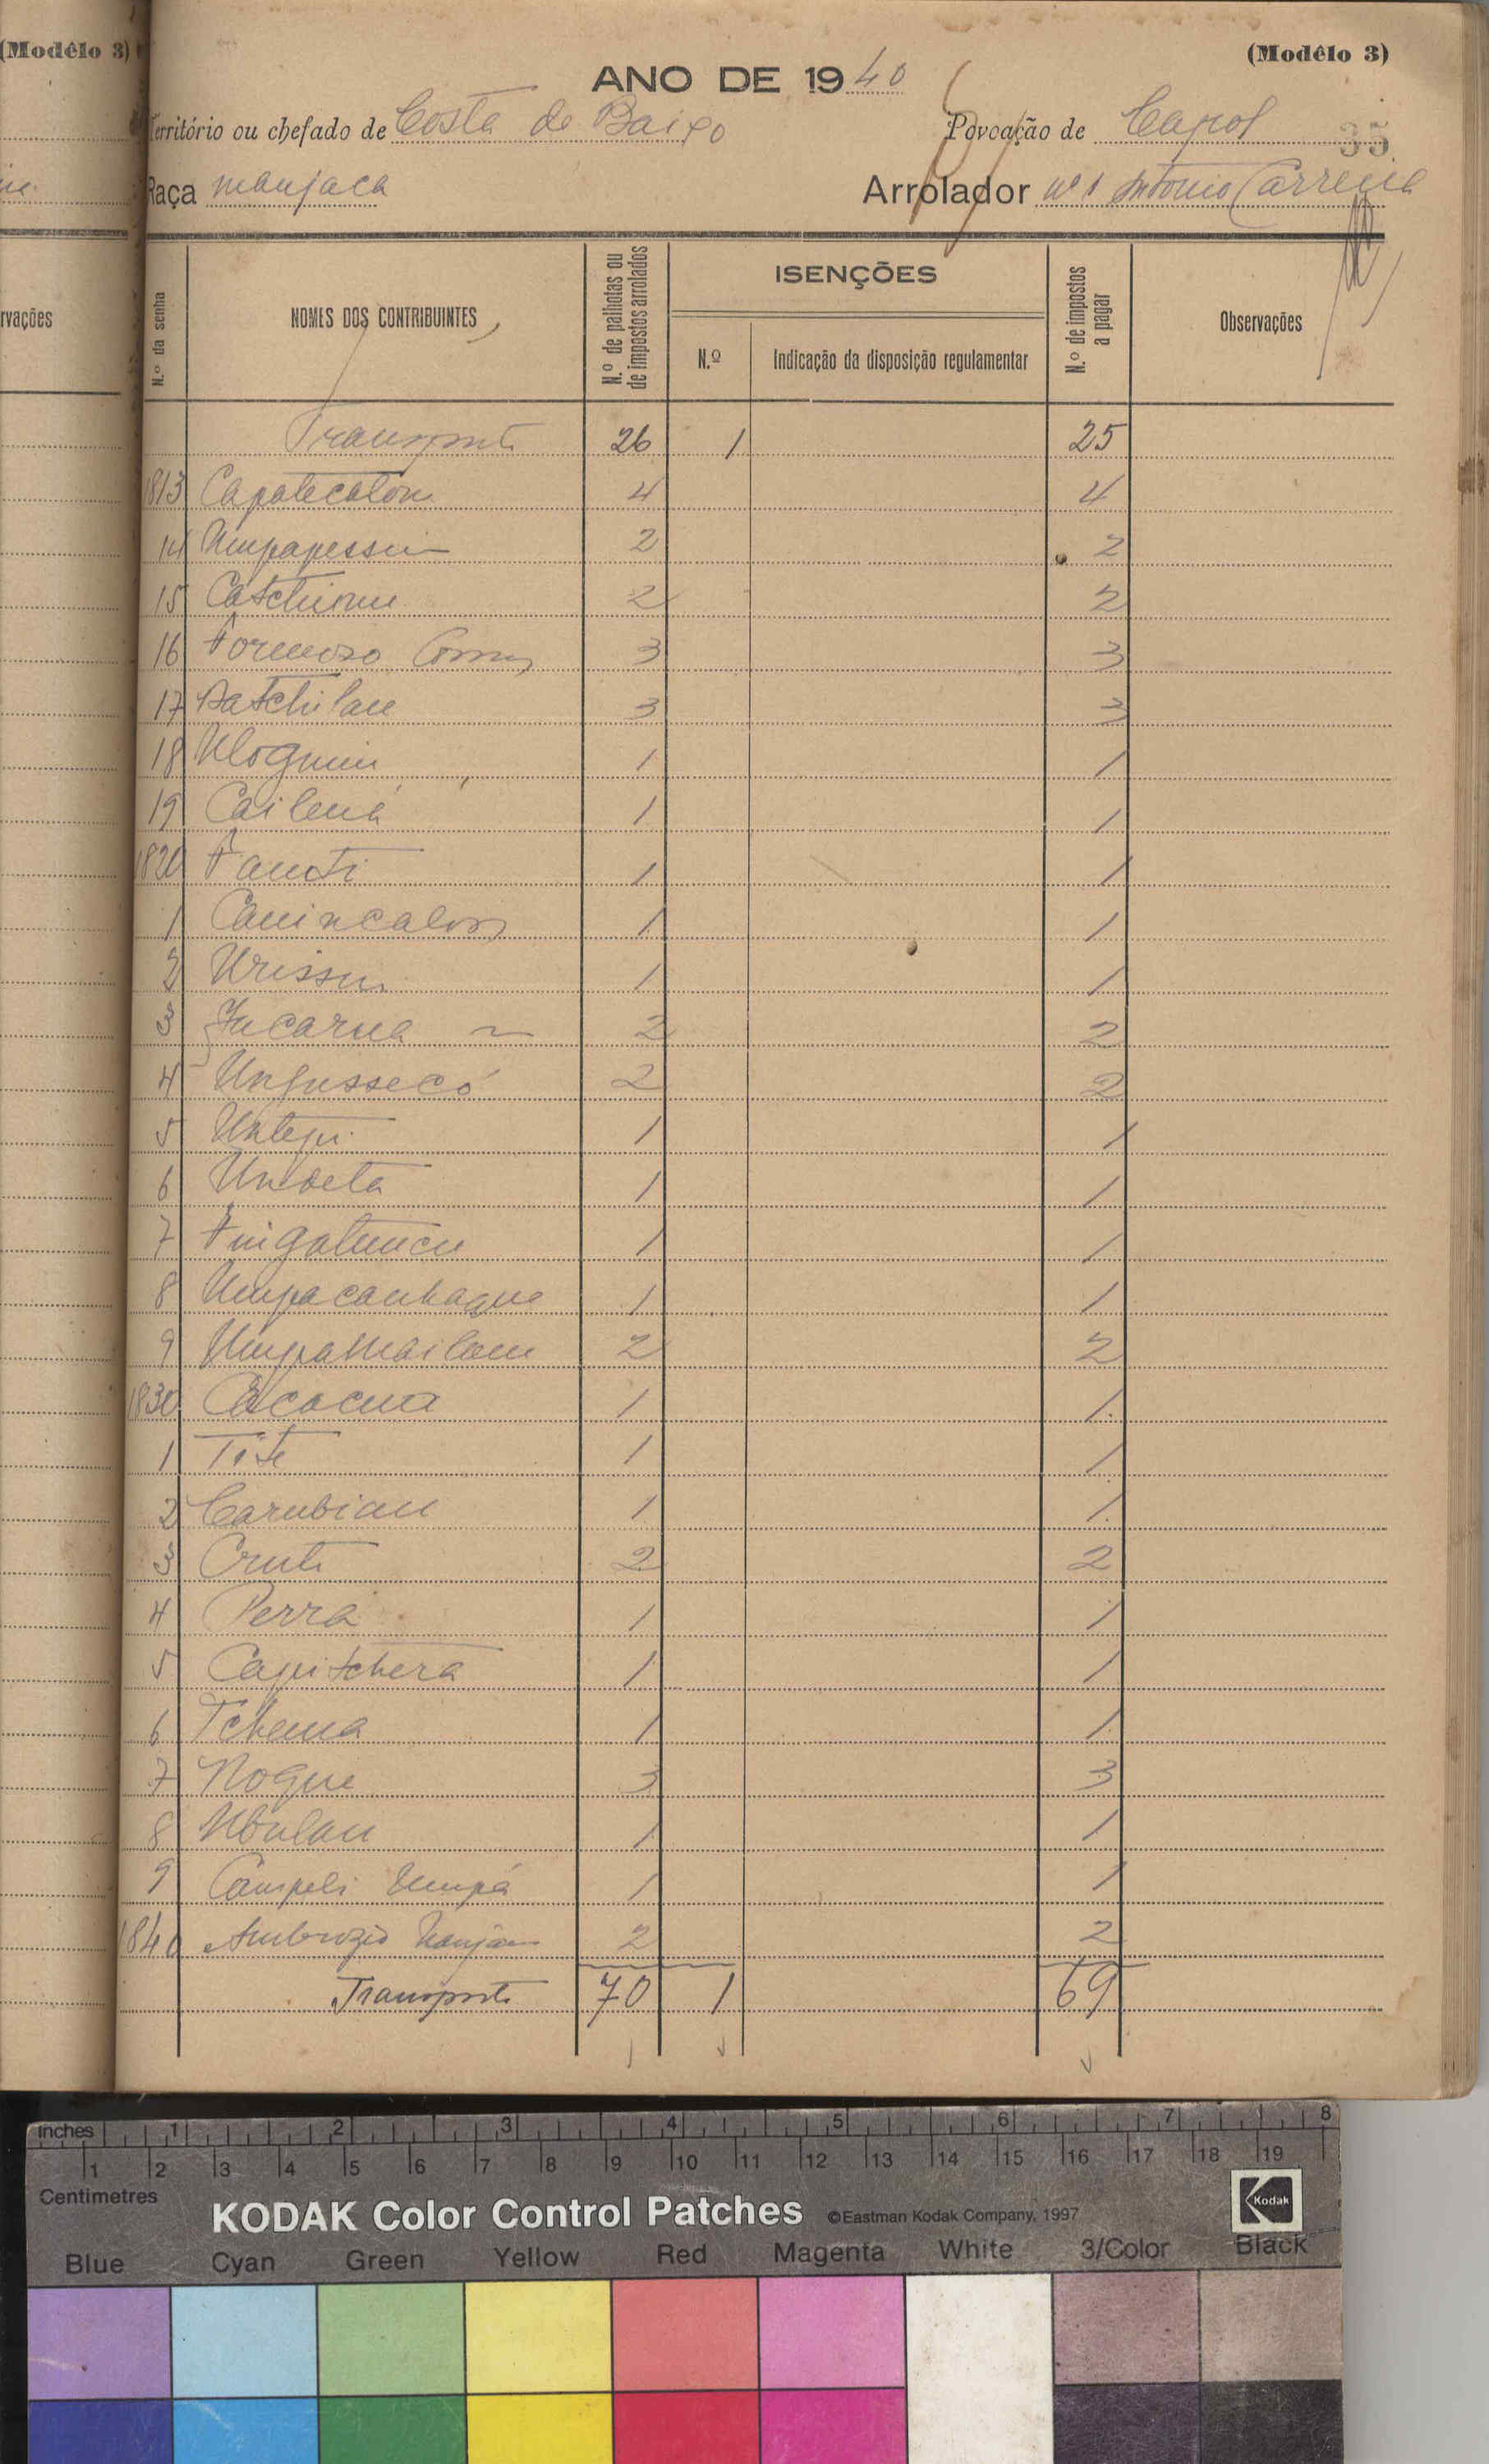 (Modêlo 3)
(Modêlo 3)
ANO DE 1940
Território ou chefado de Costa de Baixo Povoação de Capol
35
Raça manjaca Arrolador nº 1 Antonio Carreira
rvações
N.º da senha
NOMES DOS CONTRIBUINTES
N.º de palhotas ou de impostos arrolados
ISENÇÕES
N.º
Indicação da disposição regulamentar
N.º de impostos a pagar
Observações
Transporte 26 1 25
1813 Capatecalon 4 4
14 Umpapessui 2 2
15 2 2
16 Formoso Gomes 3 3
17 Batchilan 3 3
18 1 1
19 Cailená 1 1
1820 Fanoti 1 1
1 Canincalon 1 1
2 Urissu 1 1
3 2 2
4 Ungussecó 2 2
5 Untepi 1 1
6 Undeta 1 1
7 1 1
8 Umpacanhaque 1 1
9 Umpamailam 2 2
1830 1 1
1 Tite 1 1
2 Carubian 1 1
3 Cruti 2 2
4 Perra 1 1
5 Capitchera 1 1
6 Tchema 1 1
7 Nogue 3 3
8 Ubulan 1 1
9 Campeli Umpá 1 1
1840 Ambrozio 2 2
Transporte 70 1 69
inches 1 2 3 4 5 6 7 8
Centimetres 1 2 3 4 5 6 7 8 9 10 11 12 13 14 15 16 17 18 19
KODAK Color Control Patches ©Eastman Kodak Company, 1997 Kodak
Blue Cyan Green Yellow Red Magenta White 3/Color Black